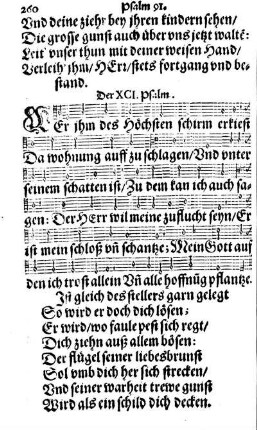 260 Psalm 91.
Vnd deine ziehr bey jhren kindern sehen/
Die grosse gunst auch über vns jetzt waltē:
Leit vnser thun mit deiner weisen Hand/
Verleih jhm/ HErr/ stets fortgang vnd be-
stand.
Der XCI. Psalm.
WEr jhm des Höchsten schirm erkiest
Da wohnung auff zu schlagen/ Vnd vnter
seinem schatten ist/ Zu dem kan ich auch sa-
gen: Der HErr wil meine zuflucht seyn/ Er
ist mein schloß vñ schantze: Mein Gott auf
den ich trost allein Vñ alle hoffnūg pflantze.
Ist gleich des stellers garn gelegt
So wird er doch dich lösen:
Er wird/ wo faule pest sich regt/
Dich ziehn auß allem bösen:
Der flügel seiner liebesbrunst
Sol vmb dich her sich strecken/
Vnd seiner warheit trewe gunst
Wird als ein schild dich decken.